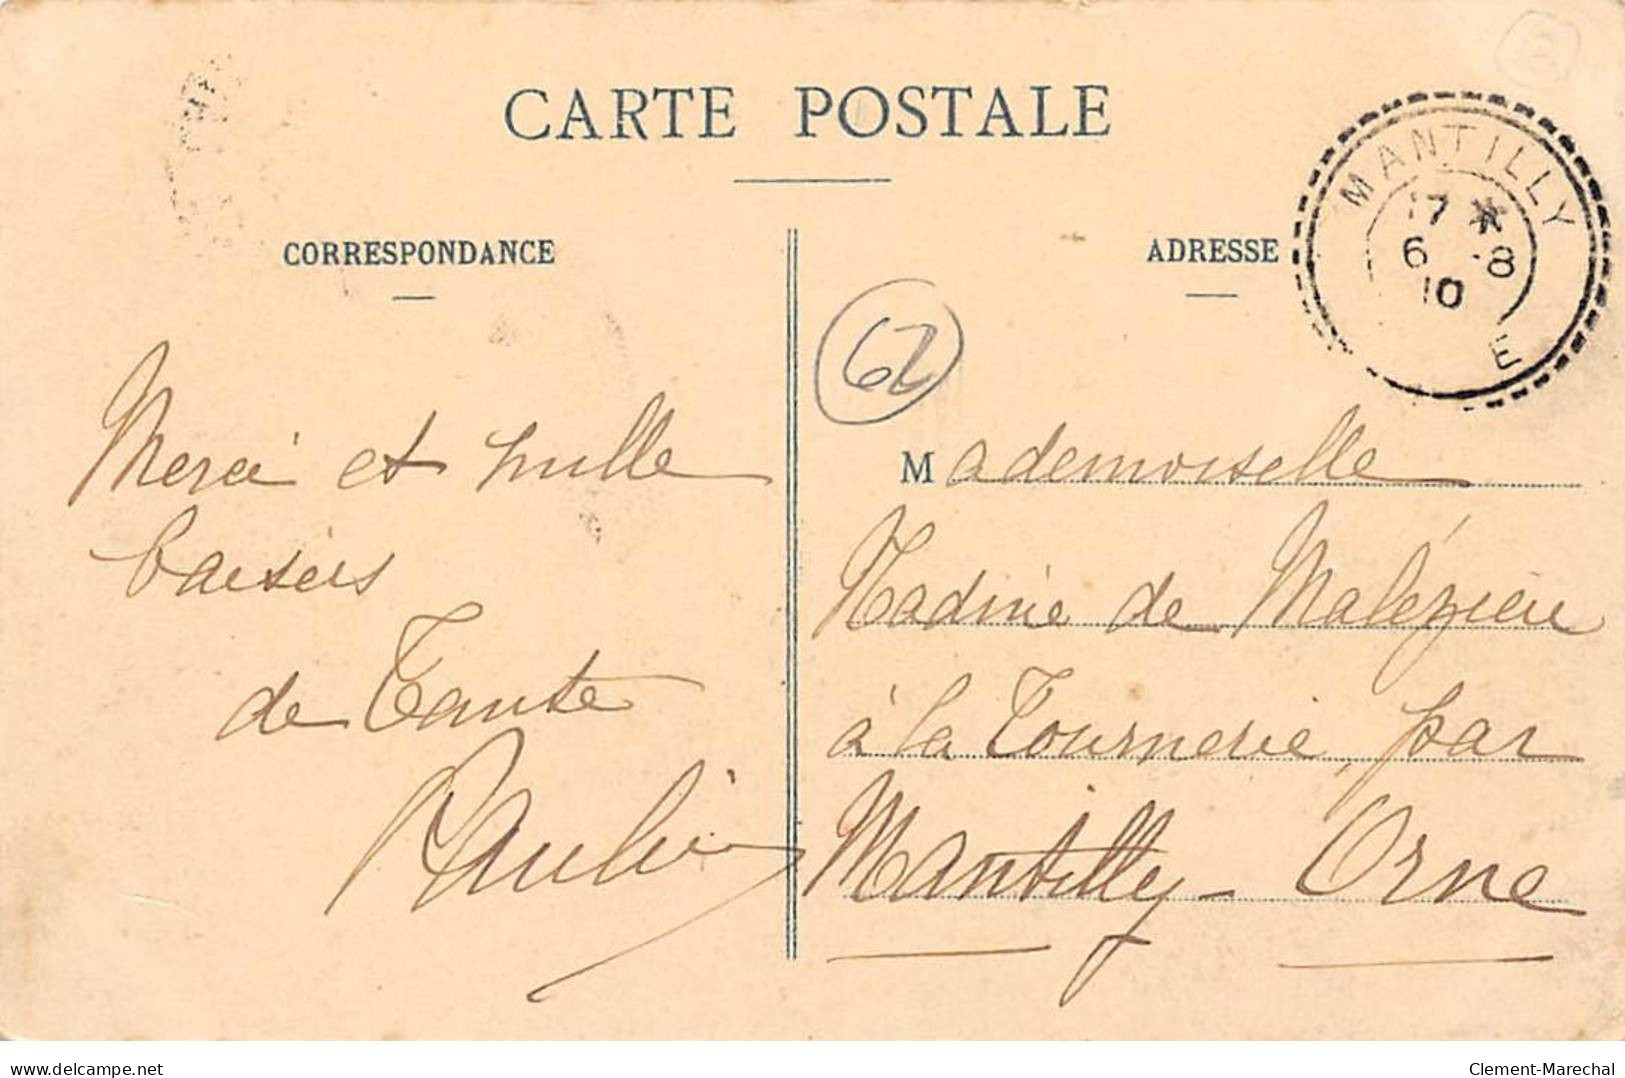 CARTE POSTALE
CORRESPONDANCE
ADRESSE
MANTILLY
17 *
6 -8
10
E
62
Merci et mille
baisers
de Tante
Mademoiselle
Nadine de Malézieu
à la Tournerie, par
Mantilly - Orne
www.delcampe.net
Clement-Marechal